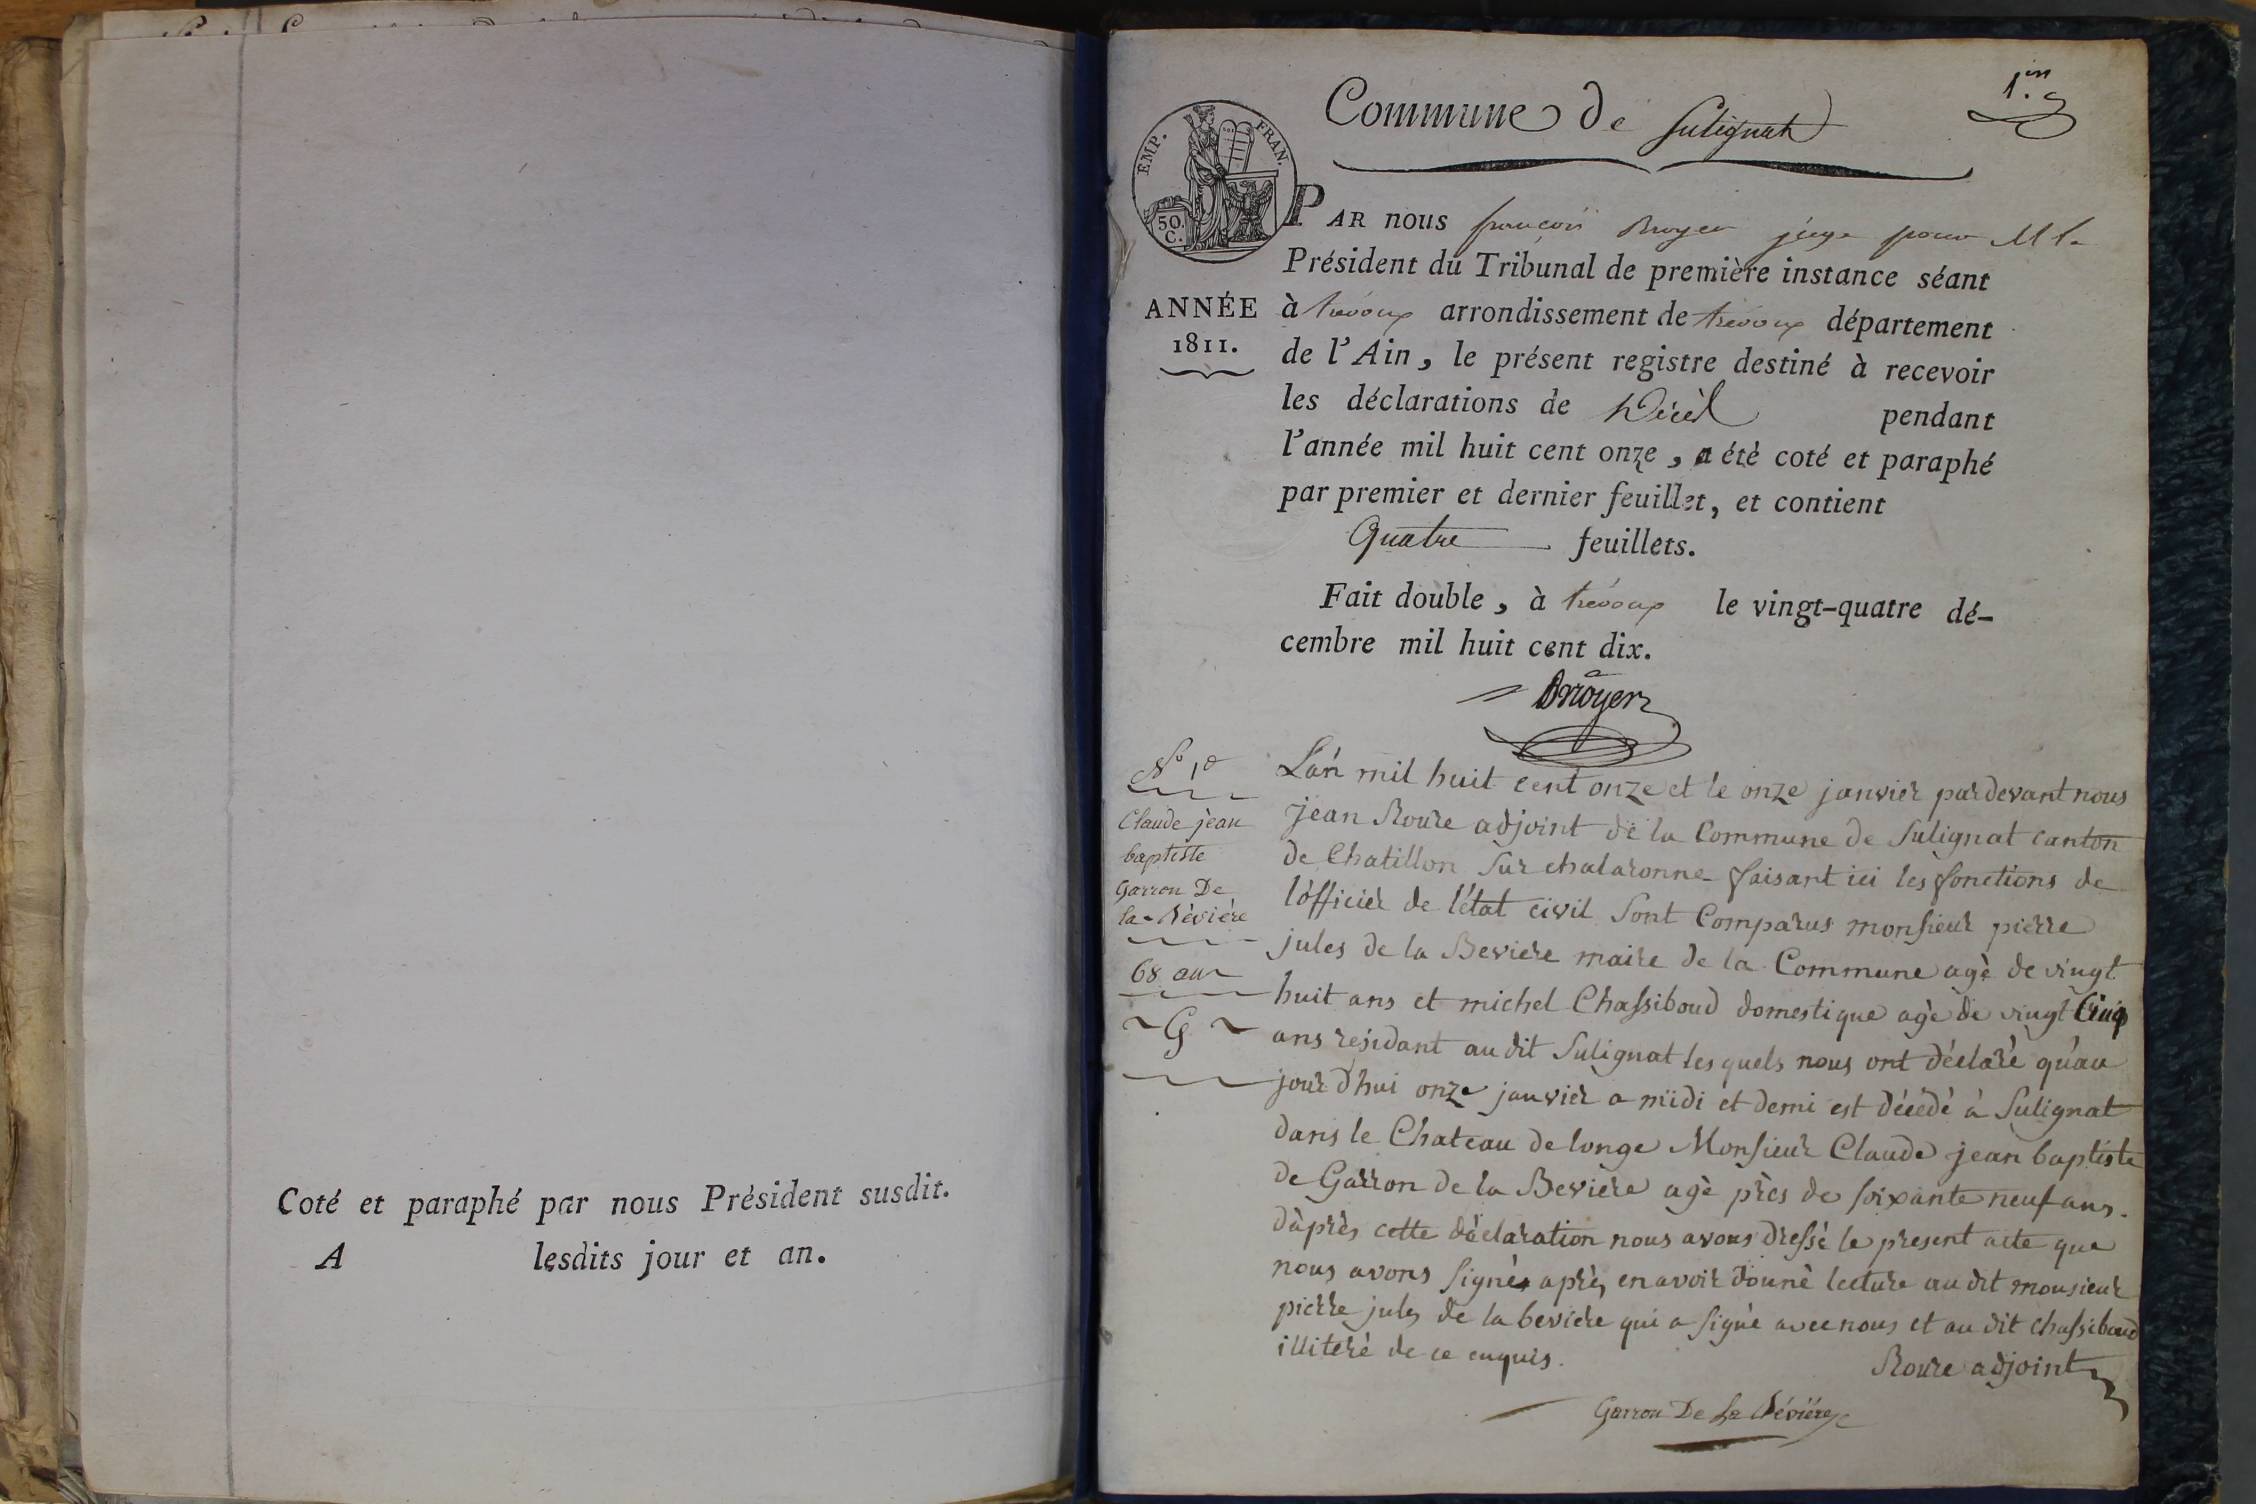 Coté et paraphé par nous Président susdit.
A lesdits jour et an.
1.er
Commune de Sulignat
EMP. FRAN.
50 C.
PAR nous françois Broyer juge pour M le
Président du Tribunal de première instance séant
à trévoux arrondissement de trévoux département
de l'Ain, le présent registre destiné à recevoir
les déclarations de Décès pendant
l'année mil huit cent onze, a été coté et paraphé
par premier et dernier feuillet, et contient
Quatre feuillets.
Fait double, à trévoux le vingt-quatre dé-
cembre mil huit cent dix.
ANNÉE
1811.
Broyer
No 1er
Claude jean
baptiste
Garron De
la Bévière
68 ans
G
L'an mil huit cent onze et le onze janvier pardevant nous
jean Roure adjoint de la Commune de Sulignat canton
de Chatillon sur chalaronne faisant ici les fonctions de
l'officier de l'état civil sont Comparus monsieur pierre
jules de la Beviere maire de la Commune agè de vingt
huit ans et michel Chassiboud domestique agè de vingt Cinq
ans residant au dit Sulignat les quels nous ont déclaré qu'au
jour d'hui onze janvier a midi et demi est décédé à Sulignat
dans le Chateau de longe Monsieur Claude jean baptiste
de Garron de la Beviere agè près de soixante neuf ans.
d'après cette déclaration nous avons dressé le present acte que
nous avons signé après en avoir donné lecture au dit monsieur
pierre jules de la beviere qui a signé avec nous et au dit chassiboud
illiteré de ce enquis.
Roure adjoint
Garron De La Bévière